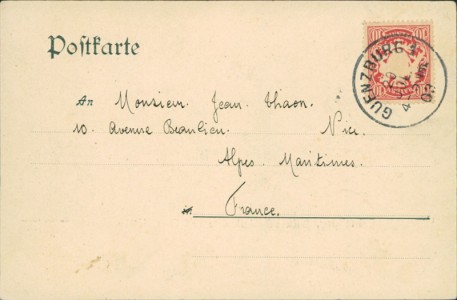 Postkarte
GUENZBURG 1
An Monsieur Jean Thaon.
10. Avenue Beaulieu. Nice.
Alpes Maritimes.
in France.